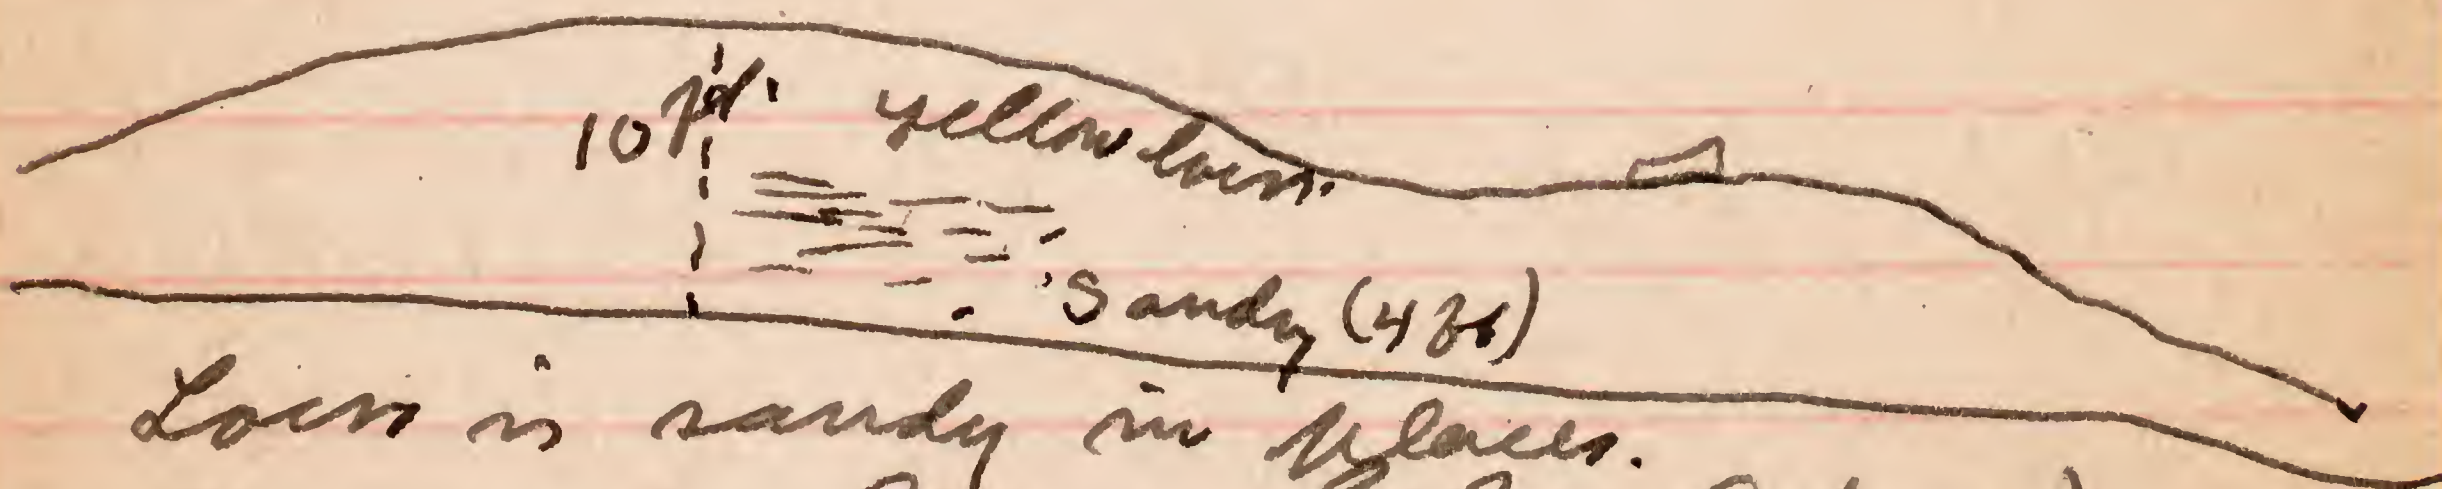 10 ft. Yellow loess.
Sandy (4 ft)
Loess is sandy in places.